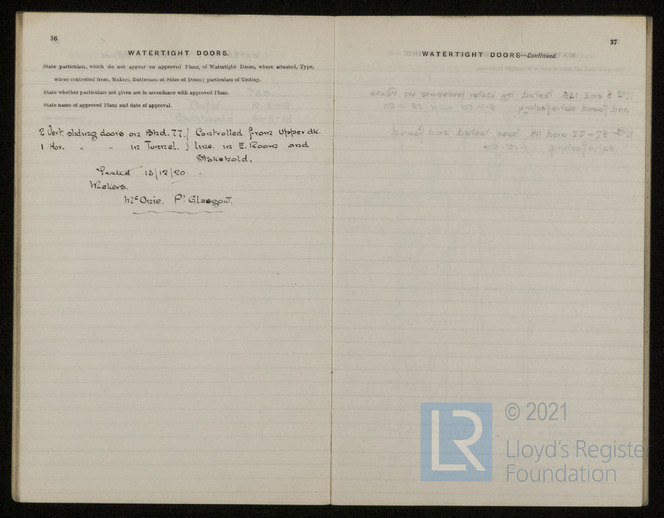 36.
WATERTIGHT DOORS.
State particulars, which do not appear on approved Plans, of Watertight Doors, where situated, Type,
where controlled from, Makers, Buttresses at Sides of Doors; particulars of Testing.
State whether particulars not given are in accordance with approved Plans.
State name of approved Plans and date of approval.
2 Vert. sliding doors on Bhd. 77. } Controlled from Upper dk.
1 Hor. " " in Tunnel. } line in E. Room and
Stokehold.
Tested 15/12/20
Makers.
Pt Glasgow.
37.
WATERTIGHT DOORS—Continued.
LR
© 2021
Lloyd's Register
Foundation